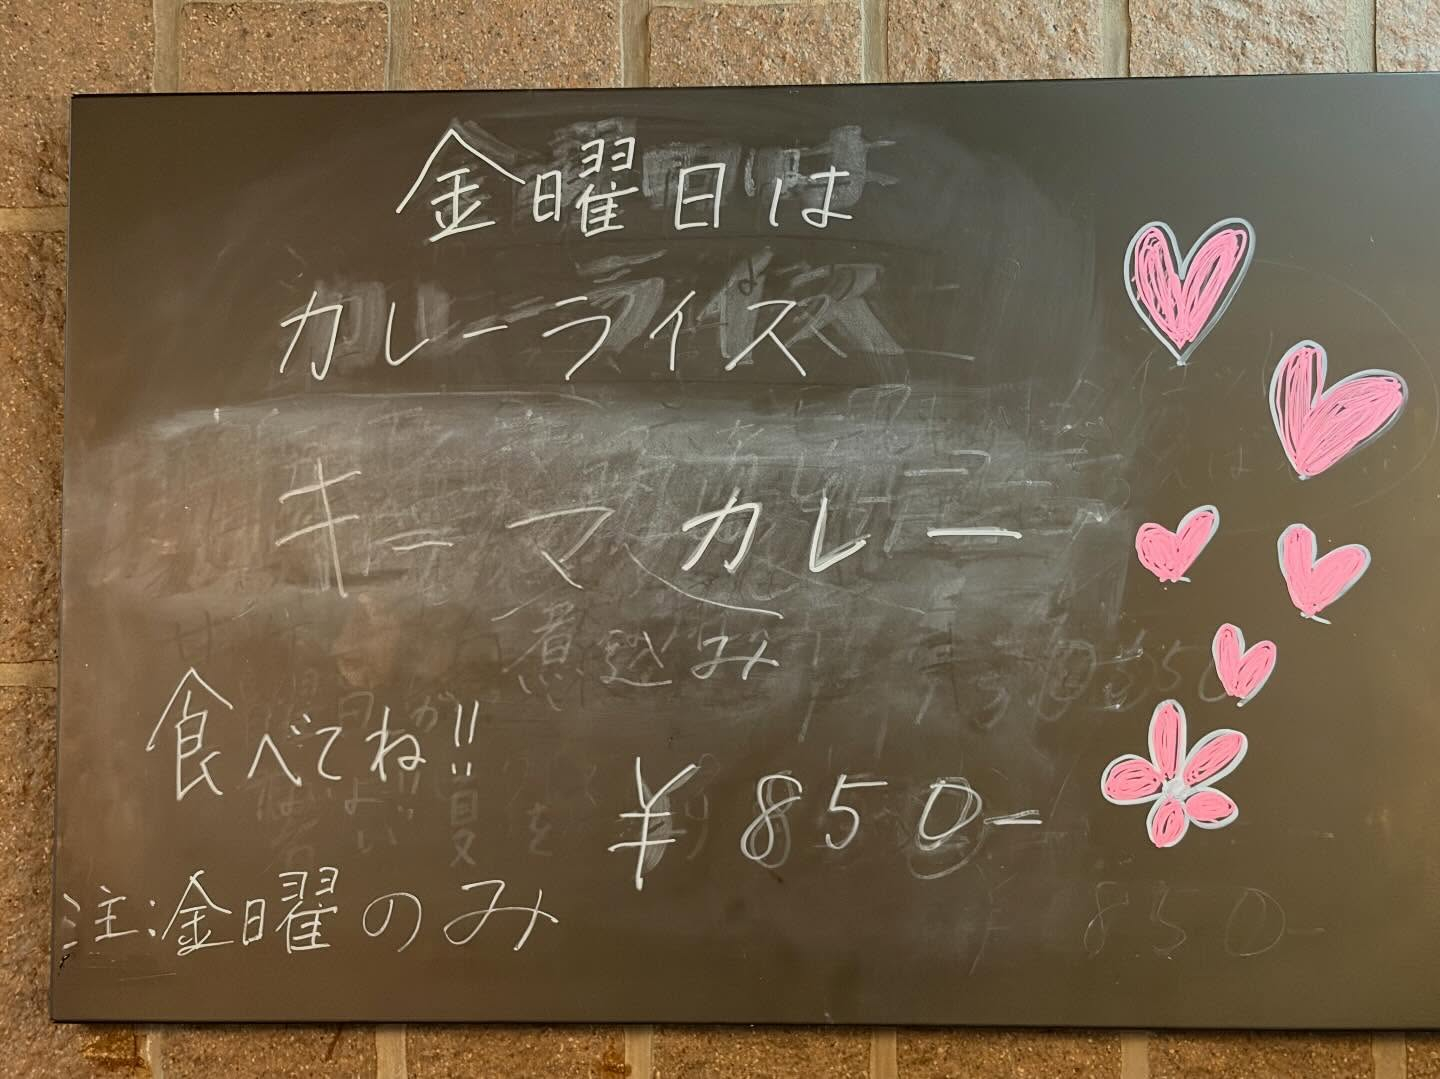 金曜日は
カレーライス
キーマカレー
煮込み
食べてね!!
¥850-
注:金曜のみ
¥850-